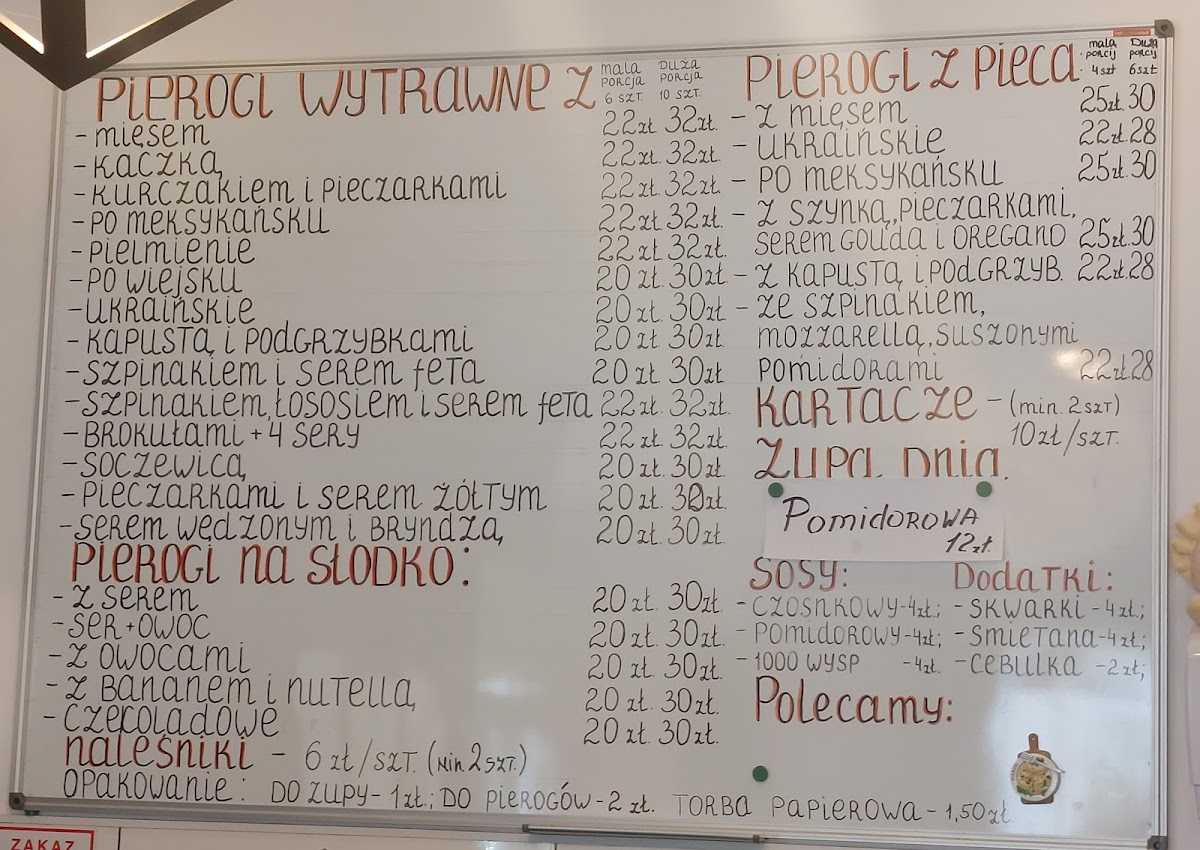 PIEROGI WYTRAWNE Z
MAŁA PORCJA 6 SZT. DUŻA PORCJA 10 SZT.
- MIĘSEM 22 zł. 32 zł.
- KACZKĄ 22 zł. 32 zł.
- KURCZAKIEM I PIECZARKAMI 22 zł. 32 zł.
- PO MEKSYKAŃSKU 22 zł. 32 zł.
- PIELMIENIE 22 zł. 32 zł.
- PO WIEJSKU 20 zł. 30 zł.
- UKRAIŃSKIE 20 zł. 30 zł.
- KAPUSTĄ I PODGRZYBKAMI 20 zł. 30 zł
- SZPINAKIEM I SEREM FETA 20 zł. 30 zł
- SZPINAKIEM, ŁOSOSIEM I SEREM FETA 22 zł. 32 zł.
- BROKUŁAMI + 4 SERY 22 zł. 32 zł.
- SOCZEWICĄ 20 zł. 30 zł.
- PIECZARKAMI I SEREM ŻÓŁTYM 20 zł. 30 zł.
- SEREM WĘDZONYM I BRYNDZĄ 20 zł. 30 zł.
PIEROGI NA SŁODKO:
- Z SEREM 20 zł. 30 zł.
- SER + OWOC 20 zł. 30 zł.
- Z OWOCAMI 20 zł. 30 zł.
- Z BANANEM I NUTELLĄ 20 zł. 30 zł.
- CZEKOLADOWE 20 zł. 30 zł.
NALEŚNIKI - 6 zł/SZT. (MIN. 2 SZT.)
OPAKOWANIE: DO ZUPY - 1 zł.; DO PIEROGÓW - 2 zł. TORBA PAPIEROWA - 1,50 zł.
PIEROGI Z PIECA
MAŁA PORCJ 4 SZT DUŻA PORCJ 6 SZT
- Z MIĘSEM 25 zł. 30
- UKRAIŃSKIE 22 zł. 28
- PO MEKSYKAŃSKU 25 zł. 30
- Z SZYNKĄ, PIECZARKAMI,
SEREM GOUDA I OREGANO 25 zł. 30
- Z KAPUSTĄ I PODGRZYB. 22 zł. 28
- ZE SZPINAKIEM,
MOZZARELLĄ, SUSZONYMI
POMIDORAMI 22 zł 28
KARTACZE - (min. 2 SZT)
10 zł/SZT.
ZUPA DNIA
POMIDOROWA
12 zł.
SOSY:
- CZOSNKOWY - 4 zł.;
- POMIDOROWY - 4 zł;
- 1000 WYSP - 4 zł.
DODATKI:
- SKWARKI - 4 zł.;
- ŚMIETANA - 4 zł;
- CEBULKA - 2 zł;
Polecamy:
ZAKAZ